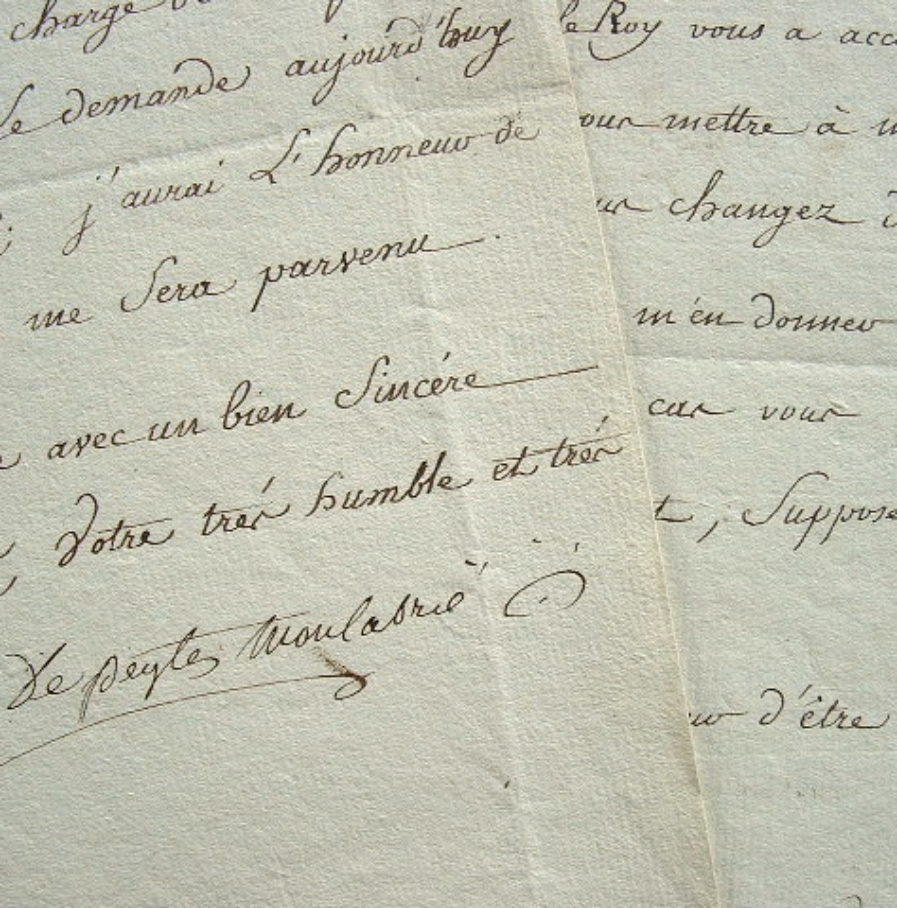 charge
Se demande aujourd'huy
j'aurai L'honneur de
me Sera parvenu.
avec un bien Sincére
Votre trés humble et trés
De peytes Moulabrié
le Roy vous a acc
our mettre à
changez d
m'en donner
cas vous
t, Suppose
ur d'être